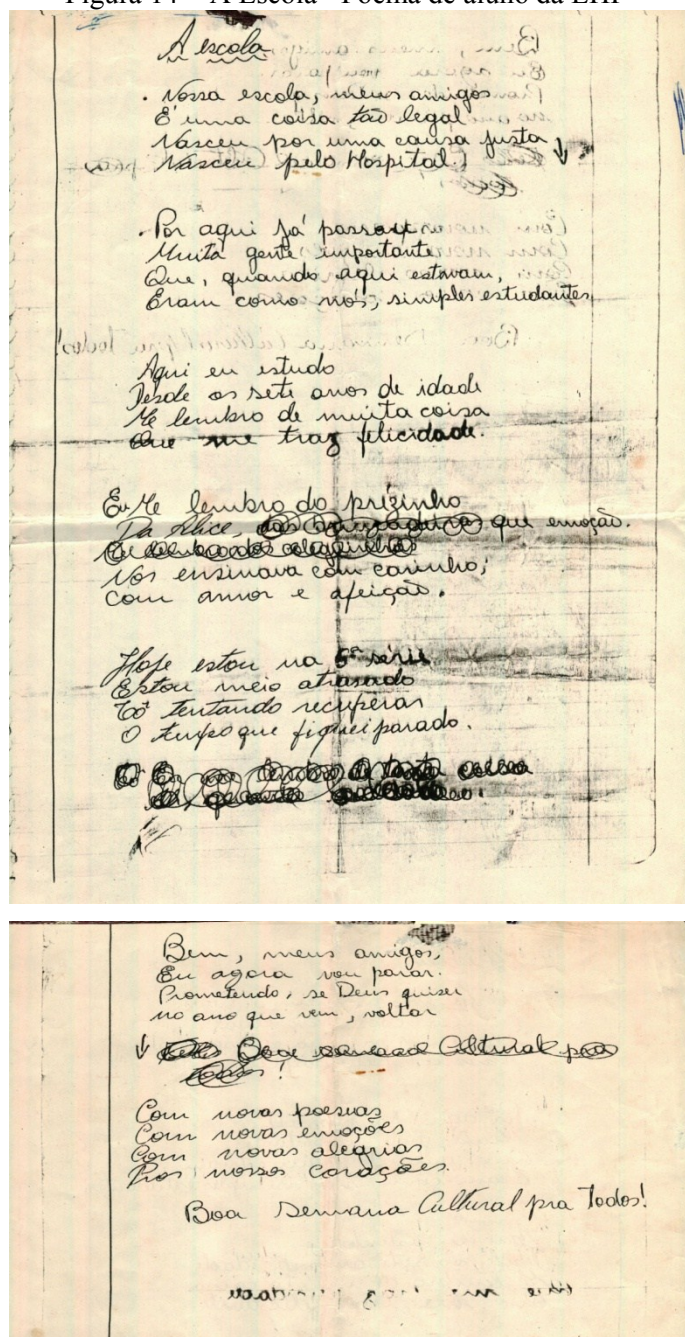 Figura 14 – A Escola - Poema de aluno da EHP
A escola
. Nossa escola, meus amigos
É uma coisa tão legal
Nasceu por uma causa justa
Nasceu pelo Hospital.
. Por aqui já passou
Muita gente importante
Que, quando aqui estavam,
Eram como nós, simples estudantes,
Aqui eu estudo
Desde os sete anos de idade
Me lembro de muita coisa
Que me traz felicidade.
Eu Me lembro do prézinho
Da Alice, que emoção.
Nos ensinava com carinho,
com amor e afeição.
Hoje estou na 5ª série
Estou meio atrasado
Tô tentando recuperar
O tempo que fiquei parado.
Bem, meus amigos,
Eu agora vou parar.
Prometendo, se Deus quiser
no ano que vem, voltar
Boa semana Cultural pra
todos!
Com novas poesias
Com novas emoções
Com novas alegrias
Pros nossos corações.
Boa Semana Cultural pra Todos!